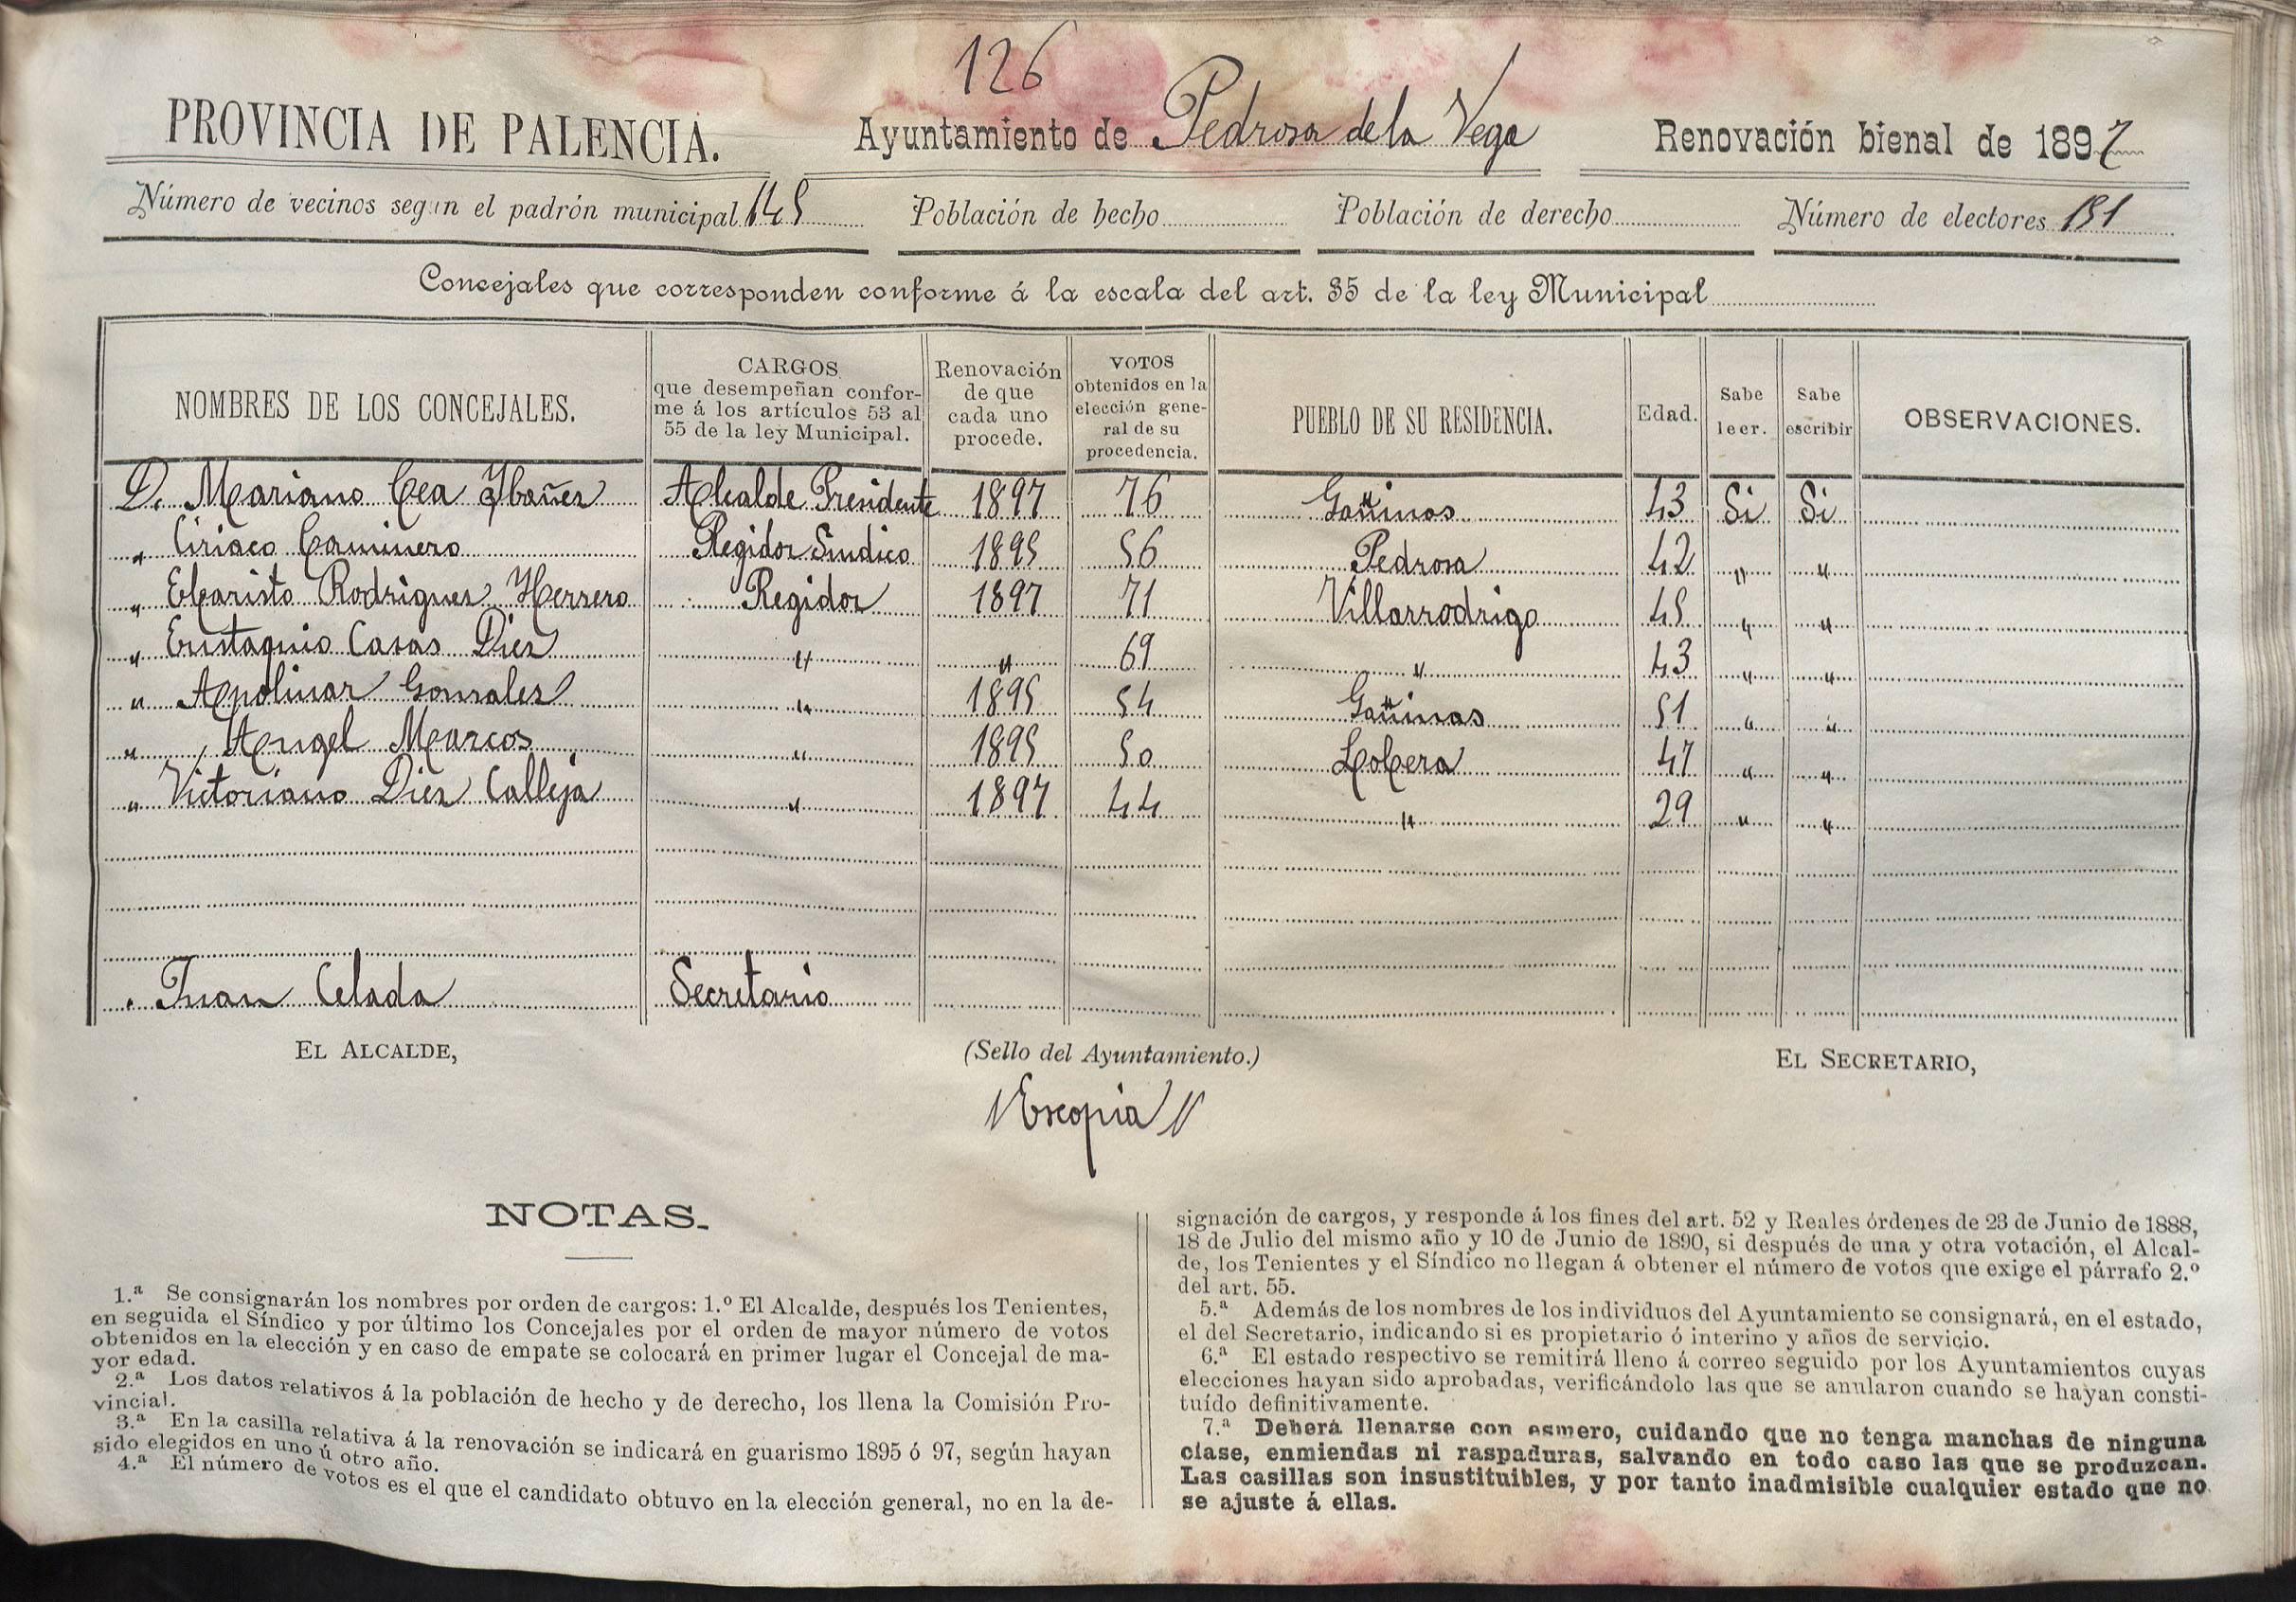 126
PROVINCIA DE PALENCIA. Ayuntamiento de Pedrosa de la Vega Renovación bienal de 1897
Número de vecinos según el padrón municipal 145 Población de hecho Población de derecho Número de electores 151
Concejales que corresponden conforme á la escala del art. 35 de la ley Municipal
NOMBRES DE LOS CONCEJALES. CARGOS que desempeñan conforme á los artículos 53 al 55 de la ley Municipal. Renovación de que cada uno procede. VOTOS obtenidos en la elección general de su procedencia. PUEBLO DE SU RESIDENCIA. Edad. Sabe leer. Sabe escribir OBSERVACIONES.
D. Mariano Cea Ybañez Alcalde Presidente 1897 76 Gañinas 43 Si Si
" Ciriaco Caminero Regidor Sindico 1895 56 Pedrosa 42 " "
" Ebaristo Rodriguez Herrero Regidor 1897 71 Villarrodrigo 45 " "
" Eustaquio Casas Diez " " 69 " 43 " "
" Apolinar Gonzalez " 1895 54 Gañinas 51 " "
" Angel Marcos " 1895 50 Lobera 47 " "
" Victoriano Diez Calleja " 1897 44 " 29 " "
Juan Celada Secretario
EL ALCALDE, (Sello del Ayuntamiento.) EL SECRETARIO,
Es copia
NOTAS.
1.ª Se consignarán los nombres por orden de cargos: 1.º El Alcalde, después los Tenientes,
en seguida el Síndico y por último los Concejales por el orden de mayor número de votos
obtenidos en la elección y en caso de empate se colocará en primer lugar el Concejal de ma-
yor edad.
2.ª Los datos relativos á la población de hecho y de derecho, los llena la Comisión Pro-
vincial.
3.ª En la casilla relativa á la renovación se indicará en guarismo 1895 ó 97, según hayan
sido elegidos en uno ú otro año.
4.ª El número de votos es el que el candidato obtuvo en la elección general, no en la de-
signación de cargos, y responde á los fines del art. 52 y Reales órdenes de 23 de Junio de 1888,
18 de Julio del mismo año y 10 de Junio de 1890, si después de una y otra votación, el Alcal-
de, los Tenientes y el Síndico no llegan á obtener el número de votos que exige el párrafo 2.º
del art. 55.
5.ª Además de los nombres de los individuos del Ayuntamiento se consignará, en el estado,
el del Secretario, indicando si es propietario ó interino y años de servicio.
6.ª El estado respectivo se remitirá lleno á correo seguido por los Ayuntamientos cuyas
elecciones hayan sido aprobadas, verificándolo las que se anularon cuando se hayan consti-
tuído definitivamente.
7.ª Deberá llenarse con esmero, cuidando que no tenga manchas de ninguna
clase, enmiendas ni raspaduras, salvando en todo caso las que se produzcan.
Las casillas son insustituibles, y por tanto inadmisible cualquier estado que no
se ajuste á ellas.